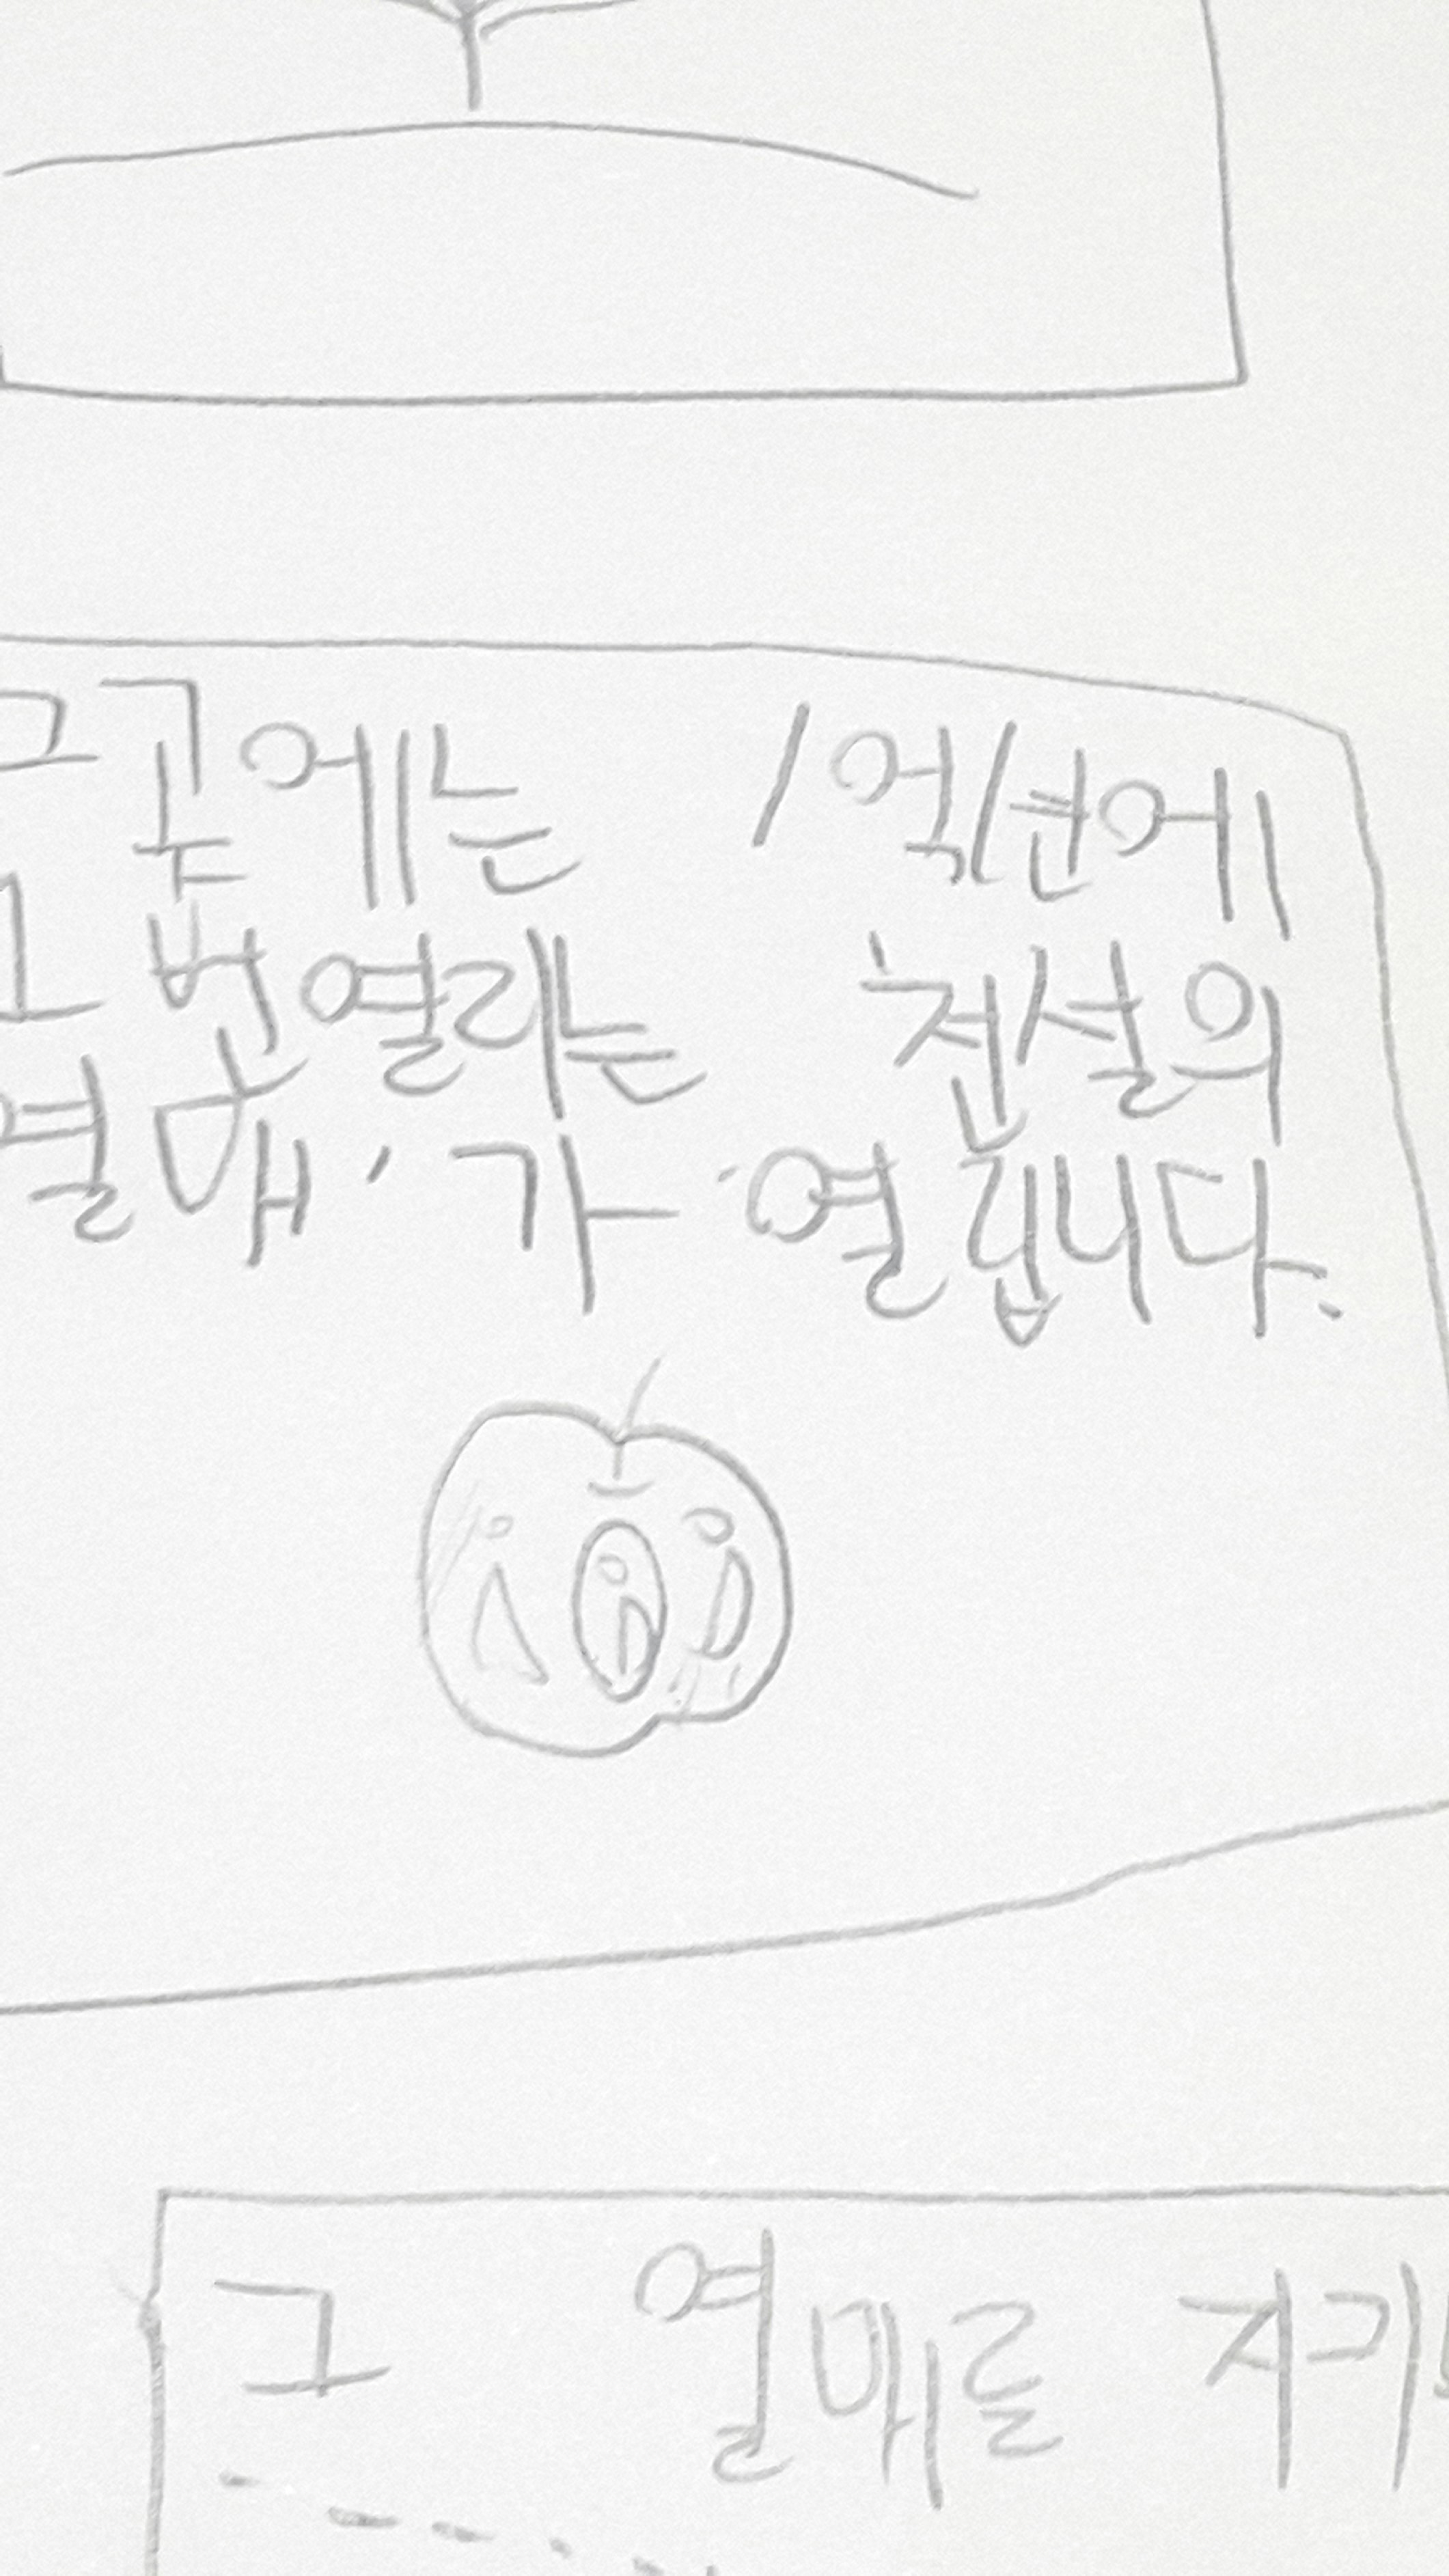 그 곳에는 1억년에
1번 열리는 전설의
열매'가 열립니다.
그 열매를 지키